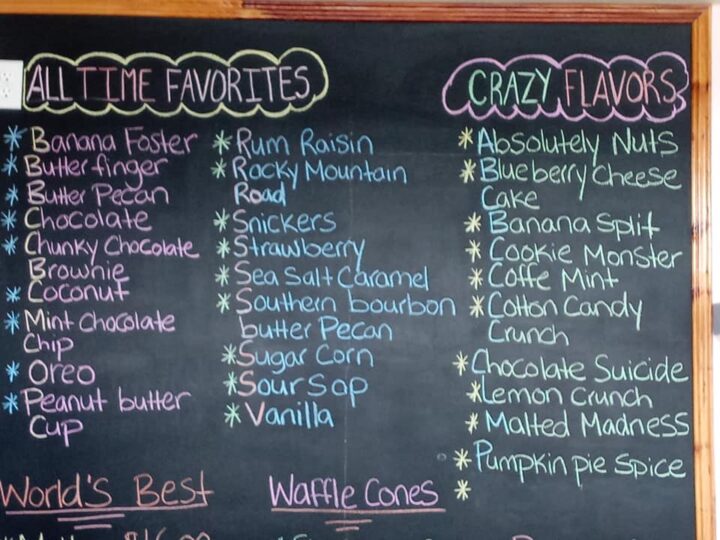 ALL TIME FAVORITES
* Banana Foster
* Butterfinger
* Butter Pecan
* Chocolate
* Chunky Chocolate
Brownie
* Coconut
* Mint Chocolate
Chip
* Oreo
* Peanut butter
Cup
* Rum Raisin
* Rocky Mountain
Road
* Snickers
* Strawberry
* Sea Salt Caramel
* Southern bourbon
butter Pecan
* Sugar Corn
* Sour Sop
* Vanilla
CRAZY FLAVORS
* Absolutely Nuts
* Blueberry Cheese
Cake
* Banana Split
* Cookie Monster
* Coffe Mint
* Cotton Candy
Crunch
* Chocolate Suicide
* Lemon Crunch
* Malted Madness
* Pumpkin pie spice
*
World's Best
Waffle Cones